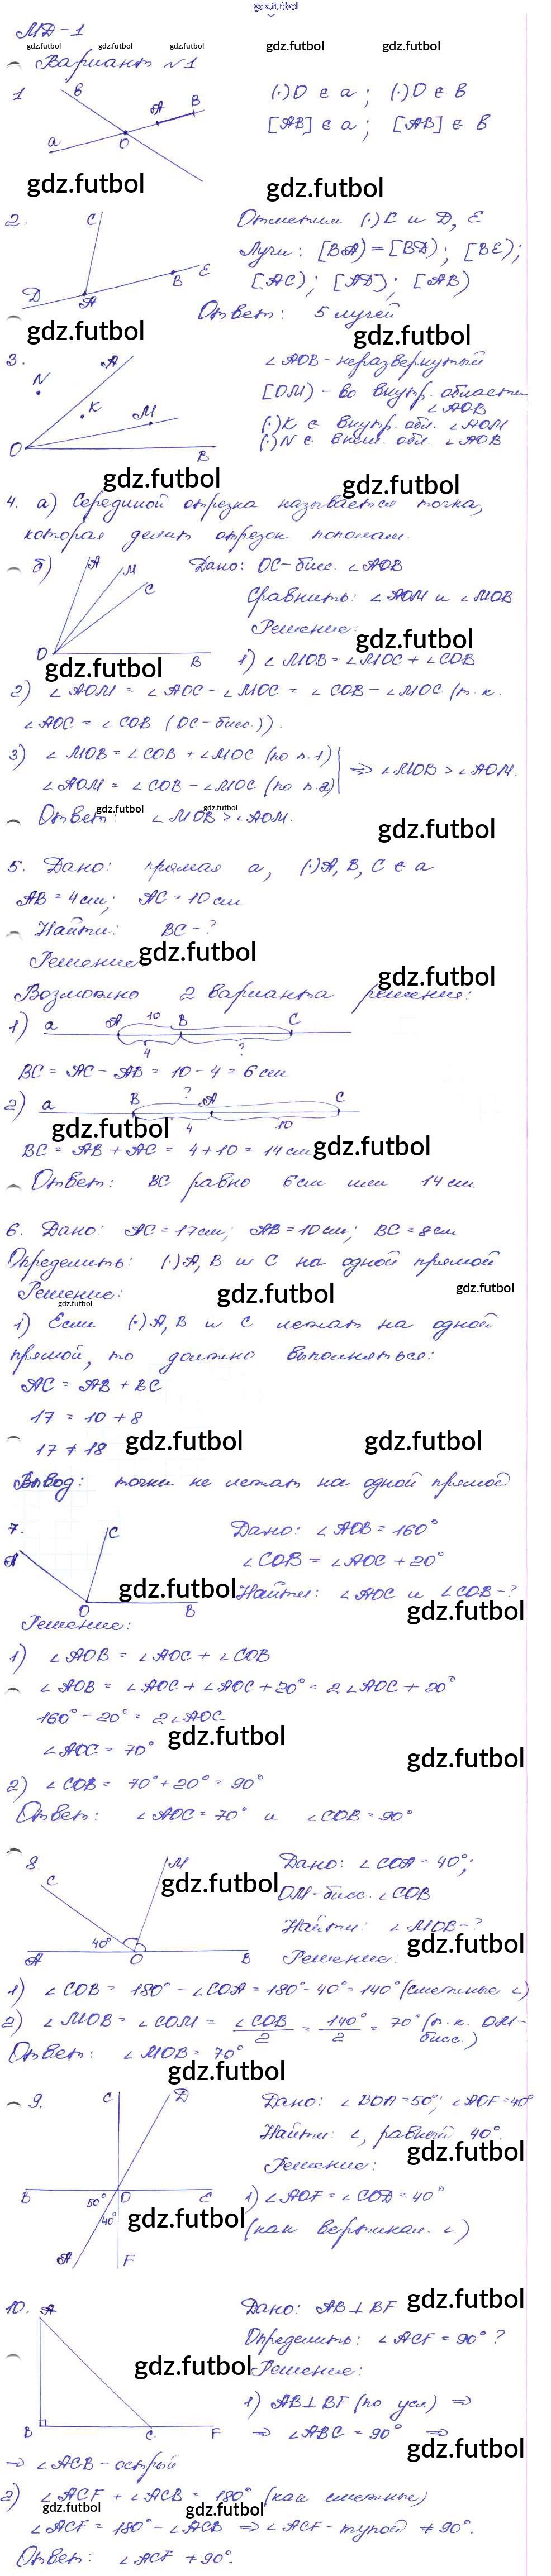 gdz.futbol
МД-1
gdz.futbol gdz.futbol gdz.futbol gdz.futbol gdz.futbol
Вариант №1
1
a в O A B
(·)O ∈ a; (·)O ∈ в
[AB] ∈ a; [AB] ∉ в
gdz.futbol gdz.futbol
2.
C D A B E
Отметим (·)C и D, E
Лучи: [BA) = [BD); [BE);
[AC); [AD); [AB)
Ответ: 5 лучей
gdz.futbol gdz.futbol
3.
N A K M O B
∠AOB - неразвернутый
[OM) - во внутр. области
∠AOB
(·)K ∈ внутр. обл. ∠AOM
(·)N ∈ внеш. обл. ∠AOB
gdz.futbol gdz.futbol
4. а) Серединой отрезка называется точка,
которая делит отрезок пополам.
б)
A M C O B
Дано: OC - бисс. ∠AOB
Сравнить: ∠AOM и ∠MOB
Решение:
gdz.futbol gdz.futbol
1) ∠MOB = ∠MOC + ∠COB
2) ∠AOM = ∠AOC - ∠MOC = ∠COB - ∠MOC (т.к.
∠AOC = ∠COB (OC - бисс.)).
3) ∠MOB = ∠COB + ∠MOC (по п.1)
∠AOM = ∠COB - ∠MOC (по п.2) ⇒ ∠MOB > ∠AOM.
gdz.futbol gdz.futbol
Ответ: ∠MOB > ∠AOM.
gdz.futbol
5. Дано: прямая a, (·)A, B, C ∈ a
AB = 4см; AC = 10см
Найти: BC - ?
Решение
gdz.futbol gdz.futbol
Возможно 2 варианта решения:
1) a A 10 B C
4 ?
BC = AC - AB = 10 - 4 = 6 см
2) a B ? A C
4 10
gdz.futbol gdz.futbol
BC = AB + AC = 4 + 10 = 14 см
Ответ: BC равно 6см или 14 см
6. Дано: AC = 17см; AB = 10см; BC = 8см
Определить: (·)A, B и C на одной прямой
Решение:
gdz.futbol gdz.futbol gdz.futbol
1) Если (·)A, B и C лежат на одной
прямой, то должно выполняться:
AC = AB + BC
17 = 10 + 8
17 ≠ 18
gdz.futbol gdz.futbol
Вывод: точки не лежат на одной прямой
7.
A C O B
Дано: ∠AOB = 160°
∠COB = ∠AOC + 20°
Найти: ∠AOC и ∠COB - ?
gdz.futbol gdz.futbol
Решение:
1) ∠AOB = ∠AOC + ∠COB
∠AOB = ∠AOC + ∠AOC + 20° = 2∠AOC + 20°
160° - 20° = 2∠AOC
∠AOC = 70°
gdz.futbol gdz.futbol
2) ∠COB = 70° + 20° = 90°
Ответ: ∠AOC = 70° и ∠COB = 90°
8
C M 40° A O B
Дано: ∠COA = 40°;
OM - бисс. ∠COB
Найти: ∠MOB - ?
Решение:
gdz.futbol gdz.futbol
1) ∠COB = 180° - ∠COA = 180° - 40° = 140° (смежные ∠)
2) ∠MOB = ∠COM = ∠COB/2 = 140°/2 = 70° (т.к. OM - бисс.)
Ответ: ∠MOB = 70°
gdz.futbol
9.
C D B 50° O C 40° A F
Дано: ∠BOA = 50°; ∠AOF = 40°
Найти: ∠, равный 40°.
Решение:
gdz.futbol gdz.futbol
1) ∠AOF = ∠COD = 40°
(как вертикал. ∠)
10.
A B C F
Дано: AB ⊥ BF
Определить: ∠ACF = 90° ?
Решение:
gdz.futbol gdz.futbol
1) AB ⊥ BF (по усл.) ⇒
⇒ ∠ABC = 90° ⇒
gdz.futbol
⇒ ∠ACB - острый
2) ∠ACF + ∠ACB = 180° (как смежные)
gdz.futbol gdz.futbol
∠ACF = 180° - ∠ACB ⇒ ∠ACF - тупой ≠ 90°.
Ответ: ∠ACF ≠ 90°.